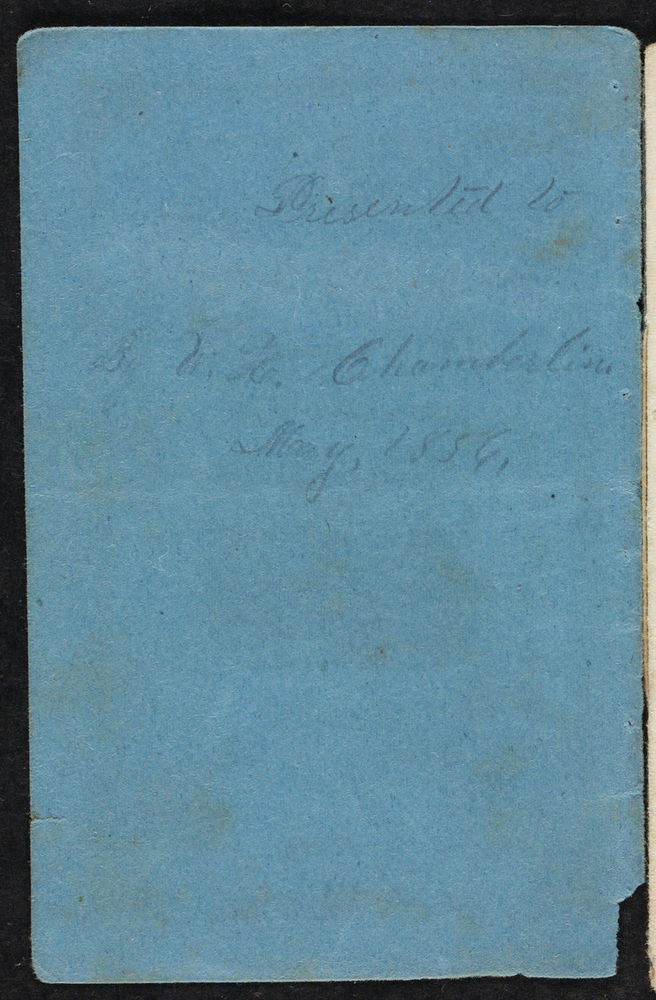 Presented to
By E. H. Chamberlin
May, 1856,